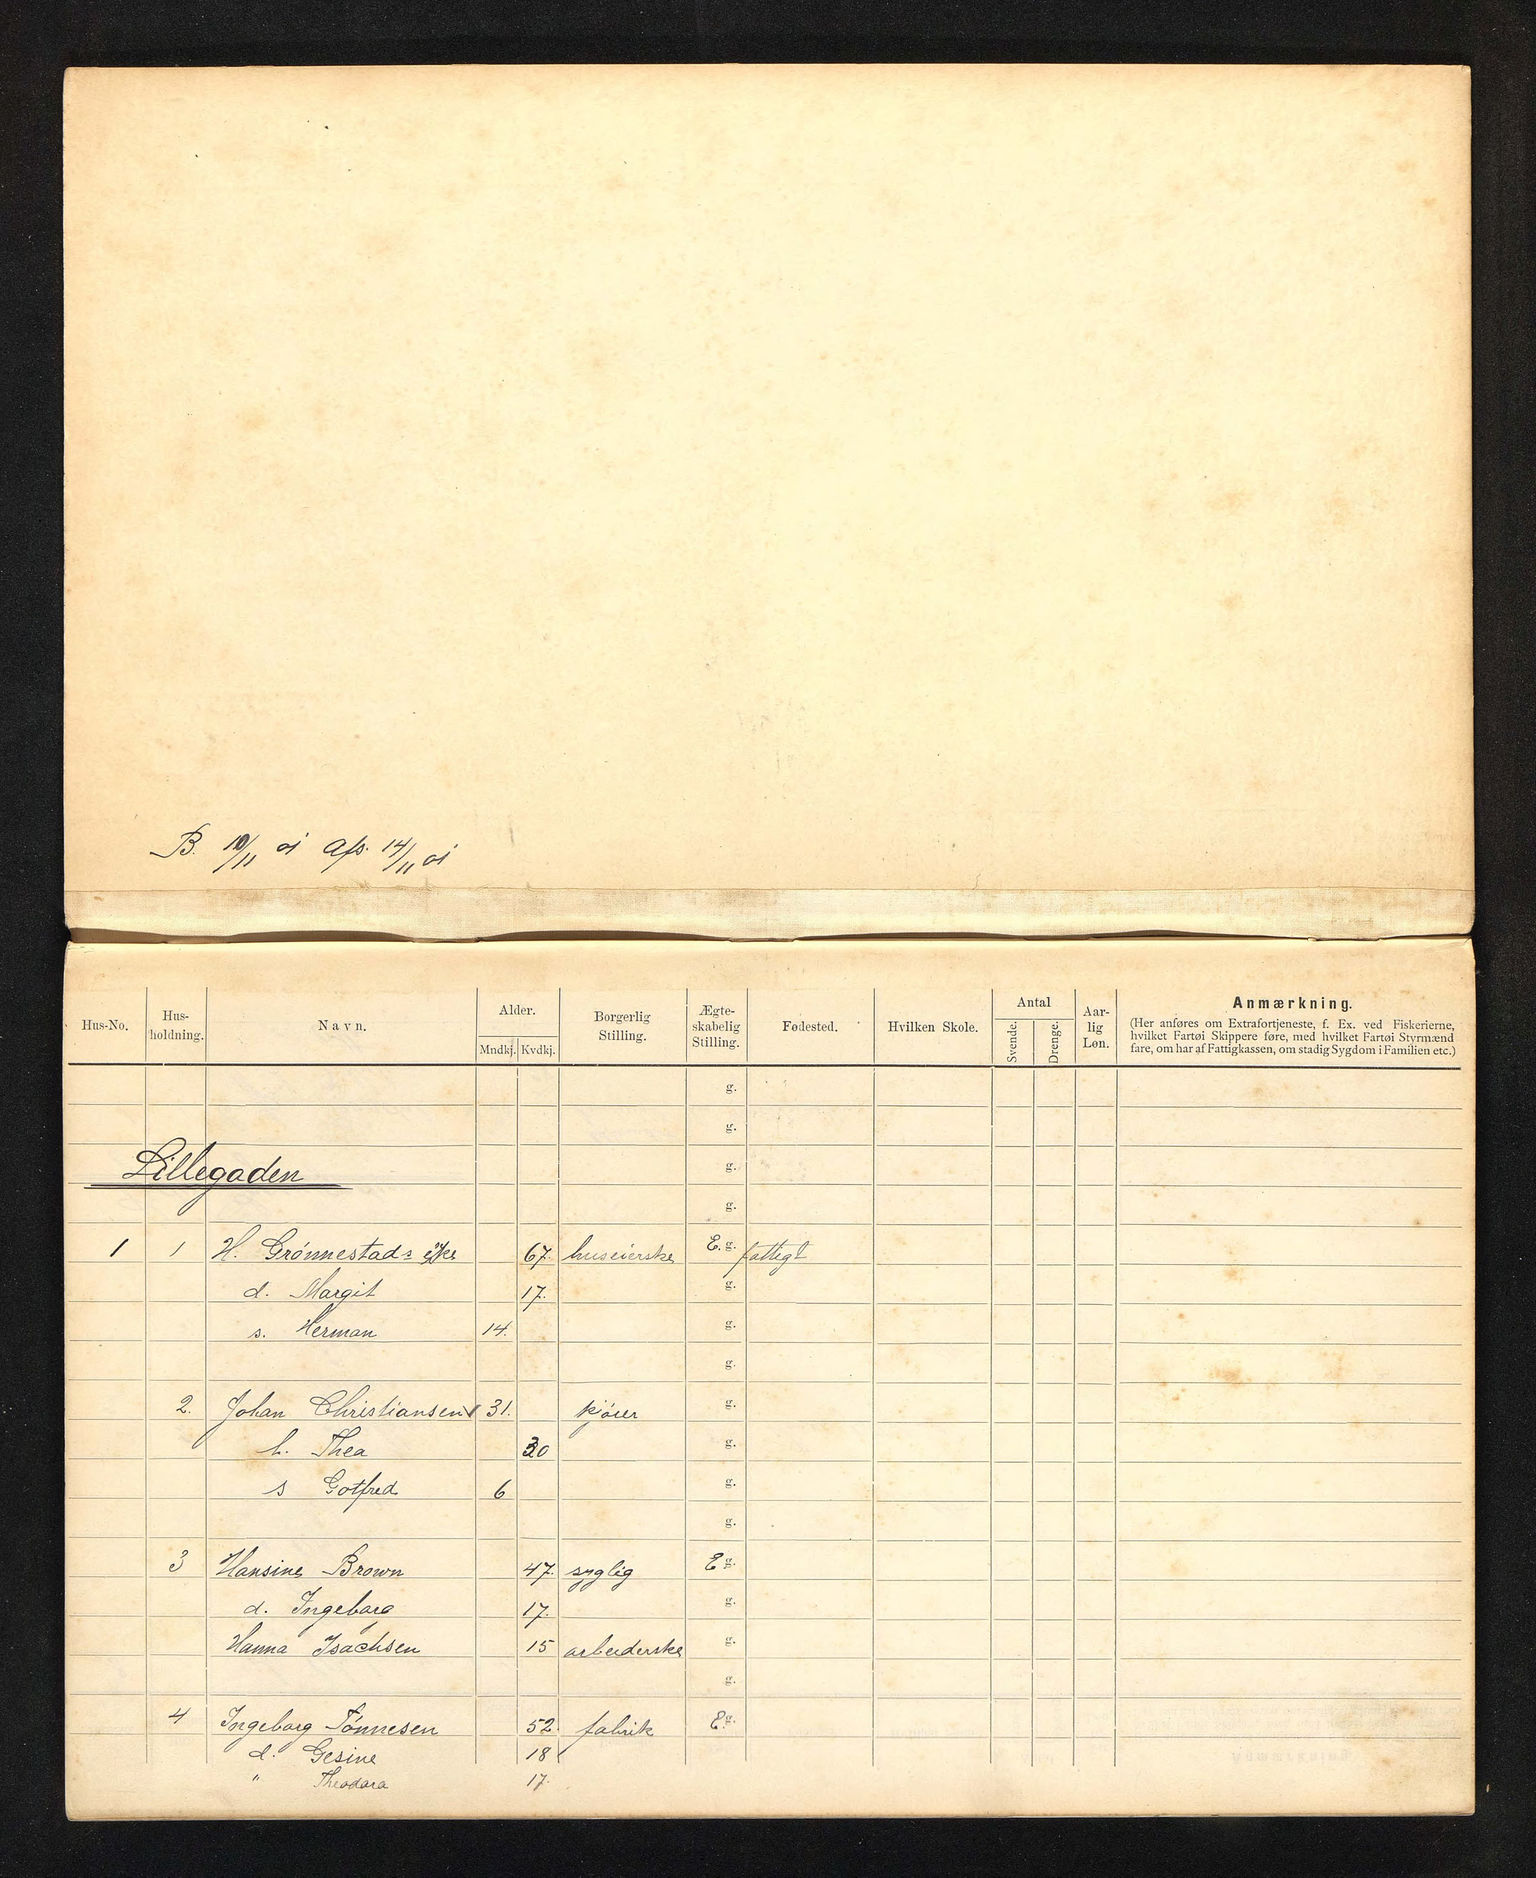 B. 10/11 01 Afs. 14/11 01
Hus-No. Hus-holdning. Navn. Alder. Mndkj. Kvdkj. Borgerlig Stilling. Ægte-skabelig Stilling. Fødested. Hvilken Skole. Antal Svende. Drenge. Aar-lig Løn. Anmærkning.
(Her anføres om Extrafortjeneste, f. Ex. ved Fiskerierne,
hvilket Fartøi Skippere føre, med hvilket Fartøi Styrmænd
fare, om har af Fattigkassen, om stadig Sygdom i Familien etc.)
g.
g.
Lillegaden g.
g.
1 1 H. Grønnestads eke 67. huseierske E. g. fattigt
d. Margit 17. g.
s. Herman 14. g.
g.
2. Johan Christiansen 31. kjører g.
h. Thea 30 g.
s Gotfred 6 g.
g.
3 Hansine Brown 47. syglig E g.
d. Ingeborg 17. g.
Hanna Isachsen 15 arbeiderske g.
g.
4 Ingeborg Tønnesen 52. fabrik E g.
d. Gesine 18
" Theodora 17.